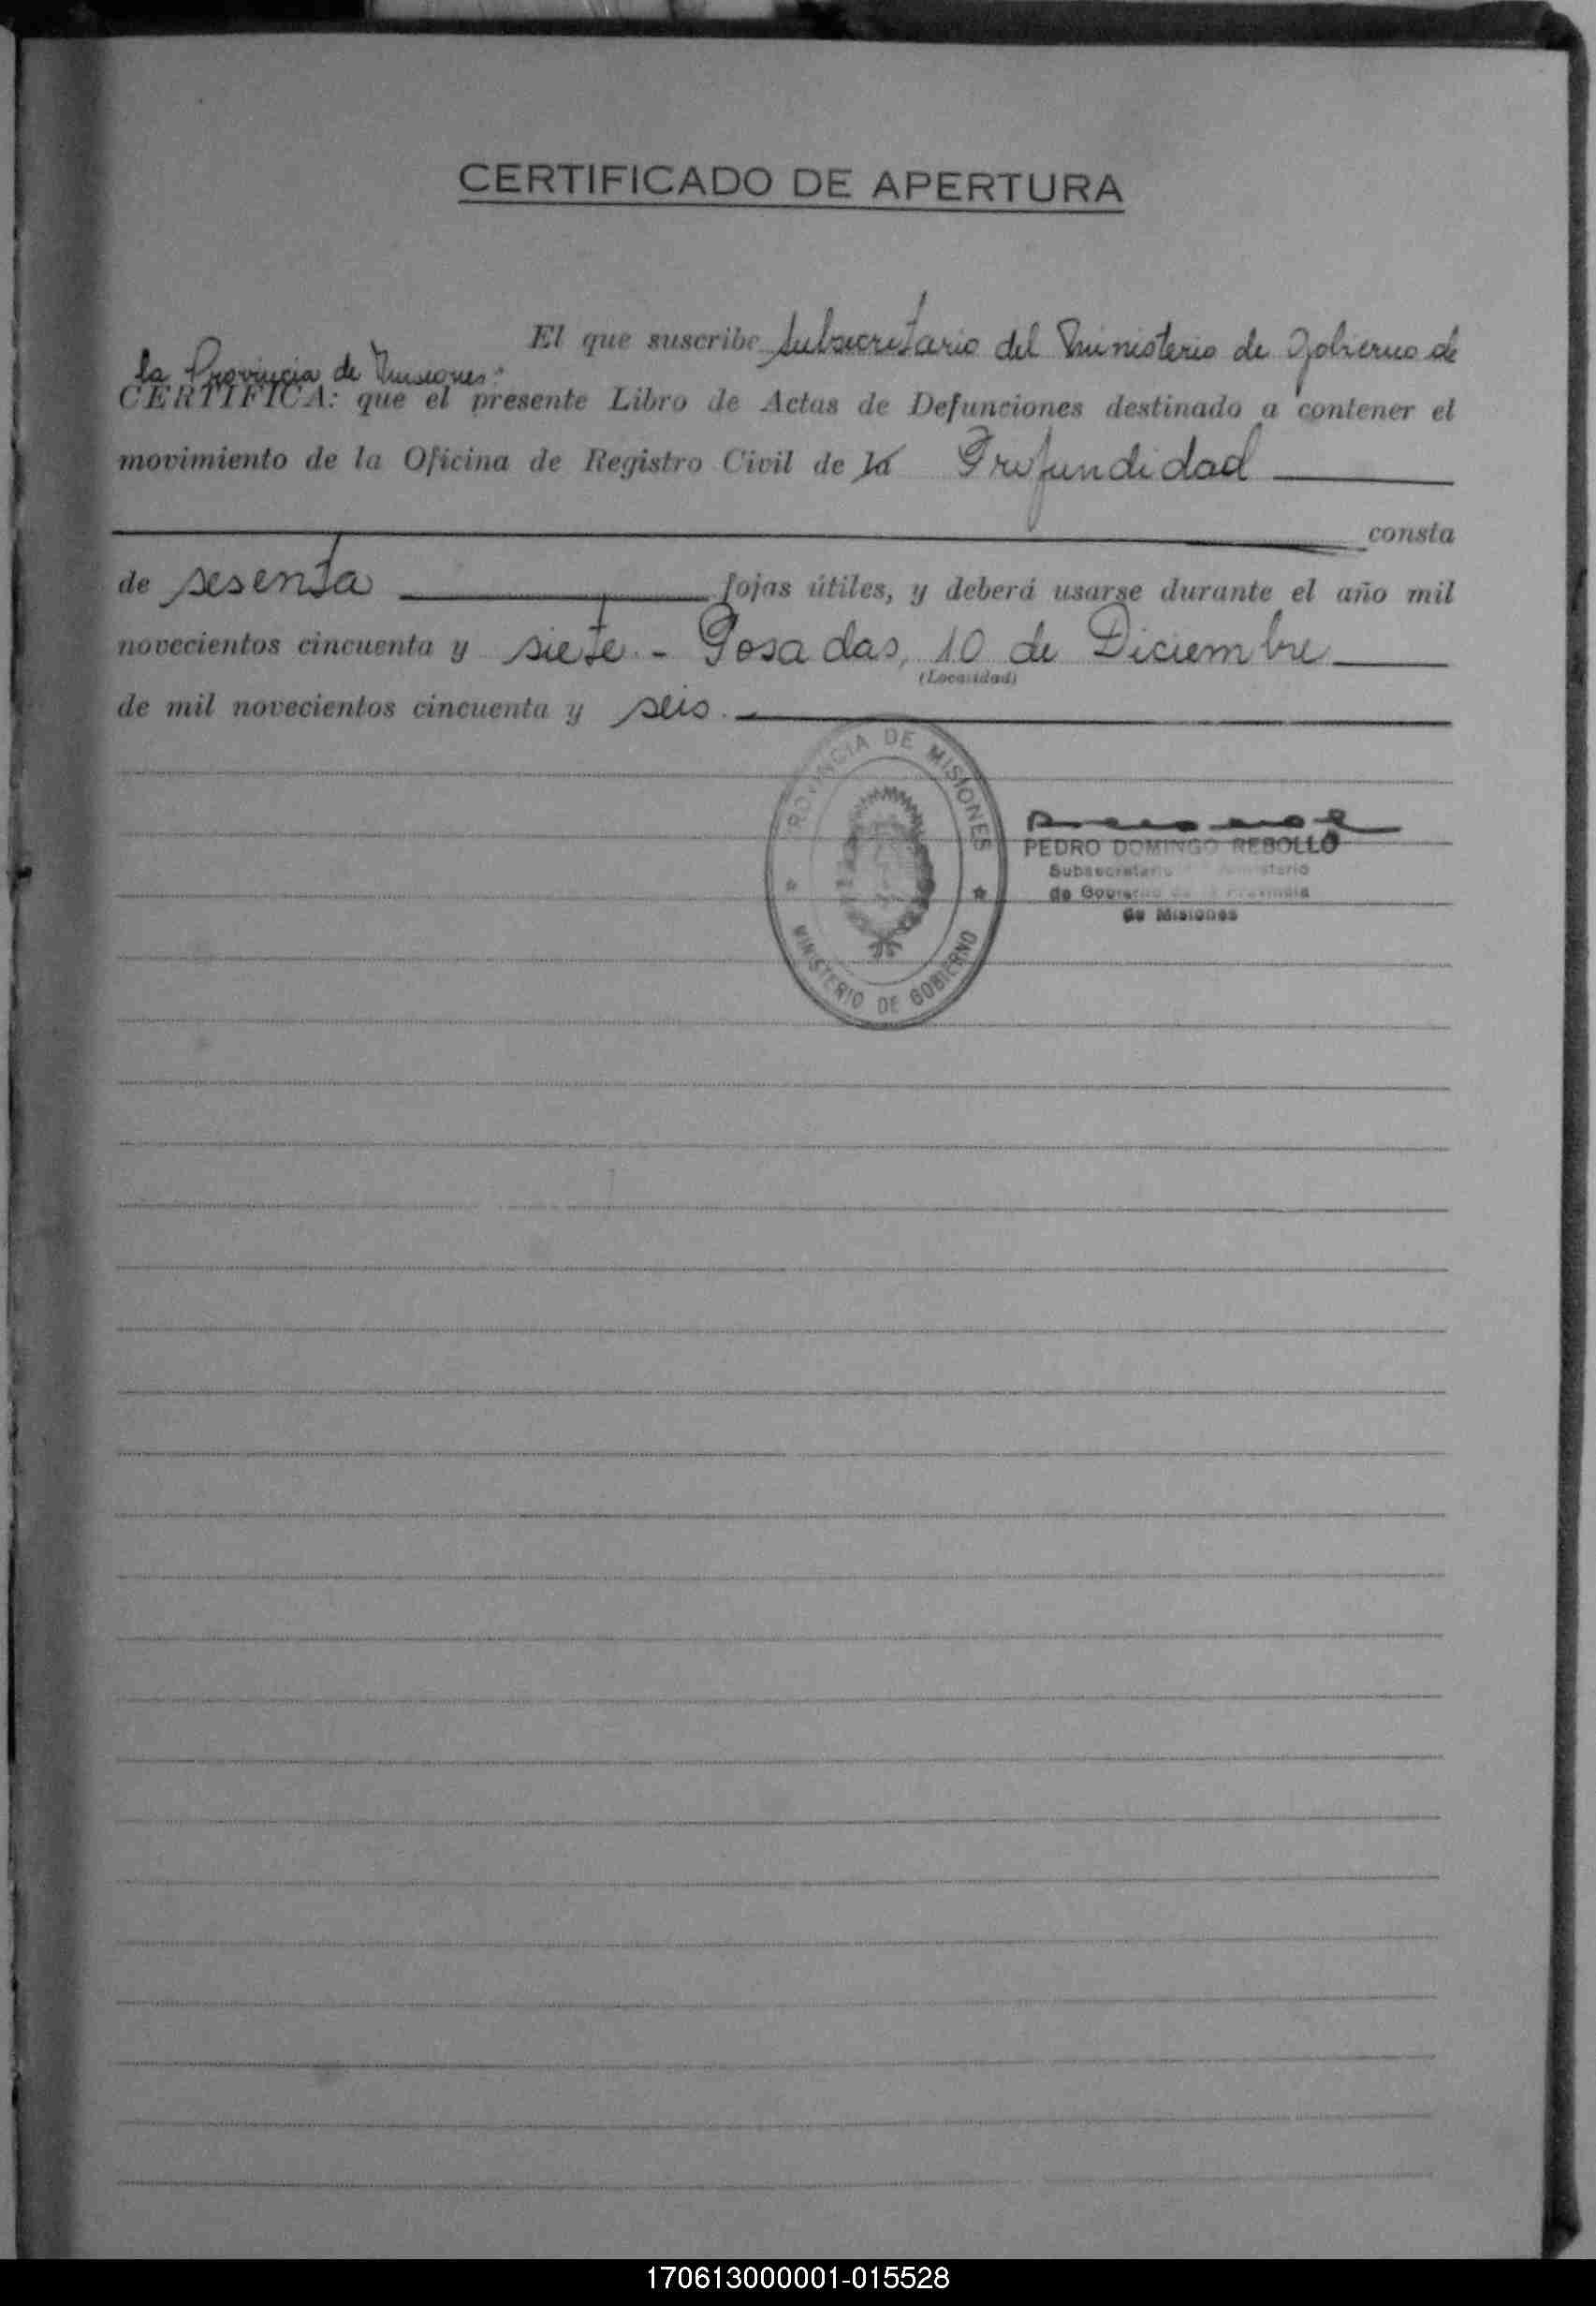 CERTIFICADO DE APERTURA
El que suscribe Subsecretario del Ministerio de Gobierno de
la Provincia de Misiones.
CERTIFICA: que el presente Libro de Actas de Defunciones destinado a contener el
movimiento de la Oficina de Registro Civil de la Profundidad
consta
de sesenta fojas útiles, y deberá usarse durante el año mil
novecientos cincuenta y siete.- Posadas, 10 de Diciembre
(Localidad)
de mil novecientos cincuenta y seis.
PROVINCIA DE MISIONES
MINISTERIO DE GOBIERNO
PEDRO DOMINGO REBOLLO
Subsecretario
de Gobierno de la Provincia
de Misiones
170613000001-015528